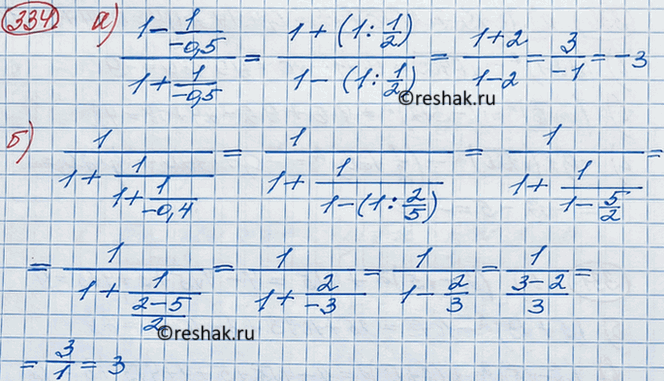 334. а) (1 - 1/(-0,5))/(1 + 1/(-0,5)) = (1 + (1 : 1/2))/(1 - (1 : 1/2)) = (1+2)/(1-2) = 3/(-1) = -3
©reshak.ru
б) 1/(1 + 1/(1 + 1/(-0,4))) = 1/(1 + 1/(1 - (1 : 2/5))) = 1/(1 + 1/(1 - 5/2)) =
= 1/(1 + 1/((2-5)/2)) = 1/(1 + 2/(-3)) = 1/(1 - 2/3) = 1/((3-2)/3) =
©reshak.ru
= 3/1 = 3